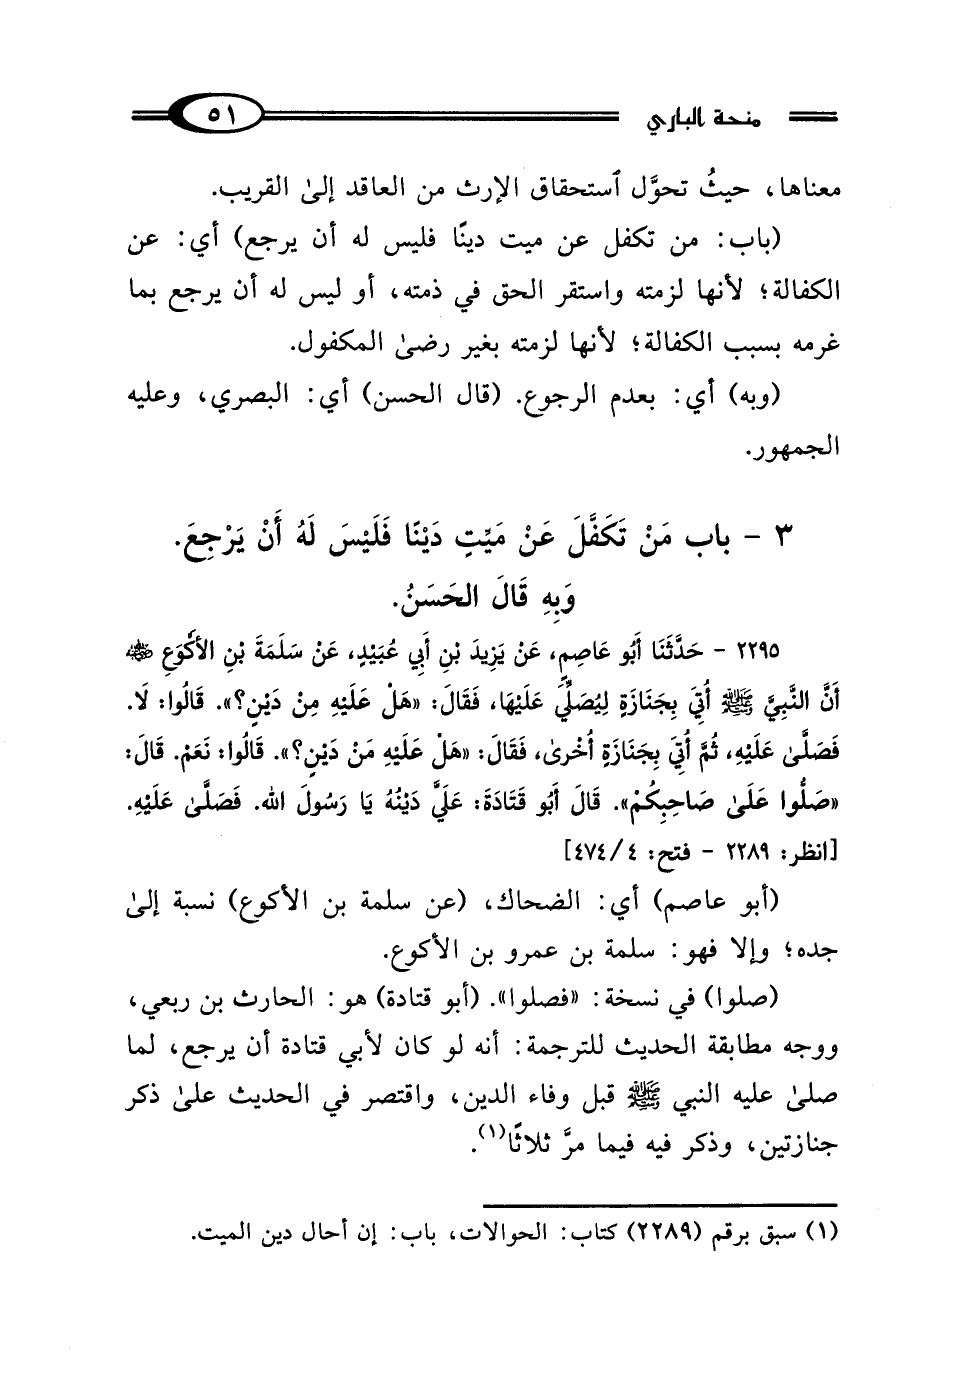 منحة الباري ٥١
معناها، حيثُ تحوَّل ٱستحقاق الإرث من العاقد إلىٰ القريب.
(باب: من تكفل عن ميت دينًا فليس له أن يرجع) أي: عن
الكفالة؛ لأنها لزمته واستقر الحق في ذمته، أو ليس له أن يرجع بما
غرمه بسبب الكفالة؛ لأنها لزمته بغير رضىٰ المكفول.
(وبه) أي: بعدم الرجوع. (قال الحسن) أي: البصري، وعليه
الجمهور.
٣ - باب مَنْ تَكَفَّلَ عَنْ مَيِّتٍ دَيْنًا فَلَيْسَ لَهُ أَنْ يَرْجِعَ.
وَبِهِ قَالَ الحَسَنُ.
٢٢٩٥ - حَدَّثَنَا أَبُو عَاصِمٍ، عَنْ يَزِيدَ بْنِ أَبِي عُبَيْدٍ، عَنْ سَلَمَةَ بْنِ الأَكْوَعِ ﵁
أَنَّ النَّبِيَّ ﷺ أُتِيَ بِجَنَازَةٍ لِيُصَلِّيَ عَلَيْهَا، فَقَالَ: «هَلْ عَلَيْهِ مِنْ دَيْنٍ؟». قَالُوا: لَا.
فَصَلَّىٰ عَلَيْهِ، ثُمَّ أُتِيَ بِجَنَازَةٍ أُخْرىٰ، فَقَالَ: «هَلْ عَلَيْهِ مَنْ دَيْنٍ؟». قَالُوا: نَعَمْ. قَالَ:
«صَلُّوا عَلَىٰ صَاحِبِكُمْ». قَالَ أَبُو قَتَادَةَ: عَلَيَّ دَيْنُهُ يَا رَسُولَ الله. فَصَلَّىٰ عَلَيْهِ.
[انظر: ٢٢٨٩ - فتح: ٤/ ٤٧٤]
(أبو عاصم) أي: الضحاك، (عن سلمة بن الأكوع) نسبة إلىٰ
جده؛ وإلا فهو: سلمة بن عمرو بن الأكوع.
(صلوا) في نسخة: «فصلوا». (أبو قتادة) هو: الحارث بن ربعي،
ووجه مطابقة الحديث للترجمة: أنه لو كان لأبي قتادة أن يرجع، لما
صلىٰ عليه النبي ﷺ قبل وفاء الدين، واقتصر في الحديث علىٰ ذكر
جنازتين، وذكر فيه فيما مرَّ ثلاثًا(١).
(١) سبق برقم (٢٢٨٩) كتاب: الحوالات، باب: إن أحال دين الميت.